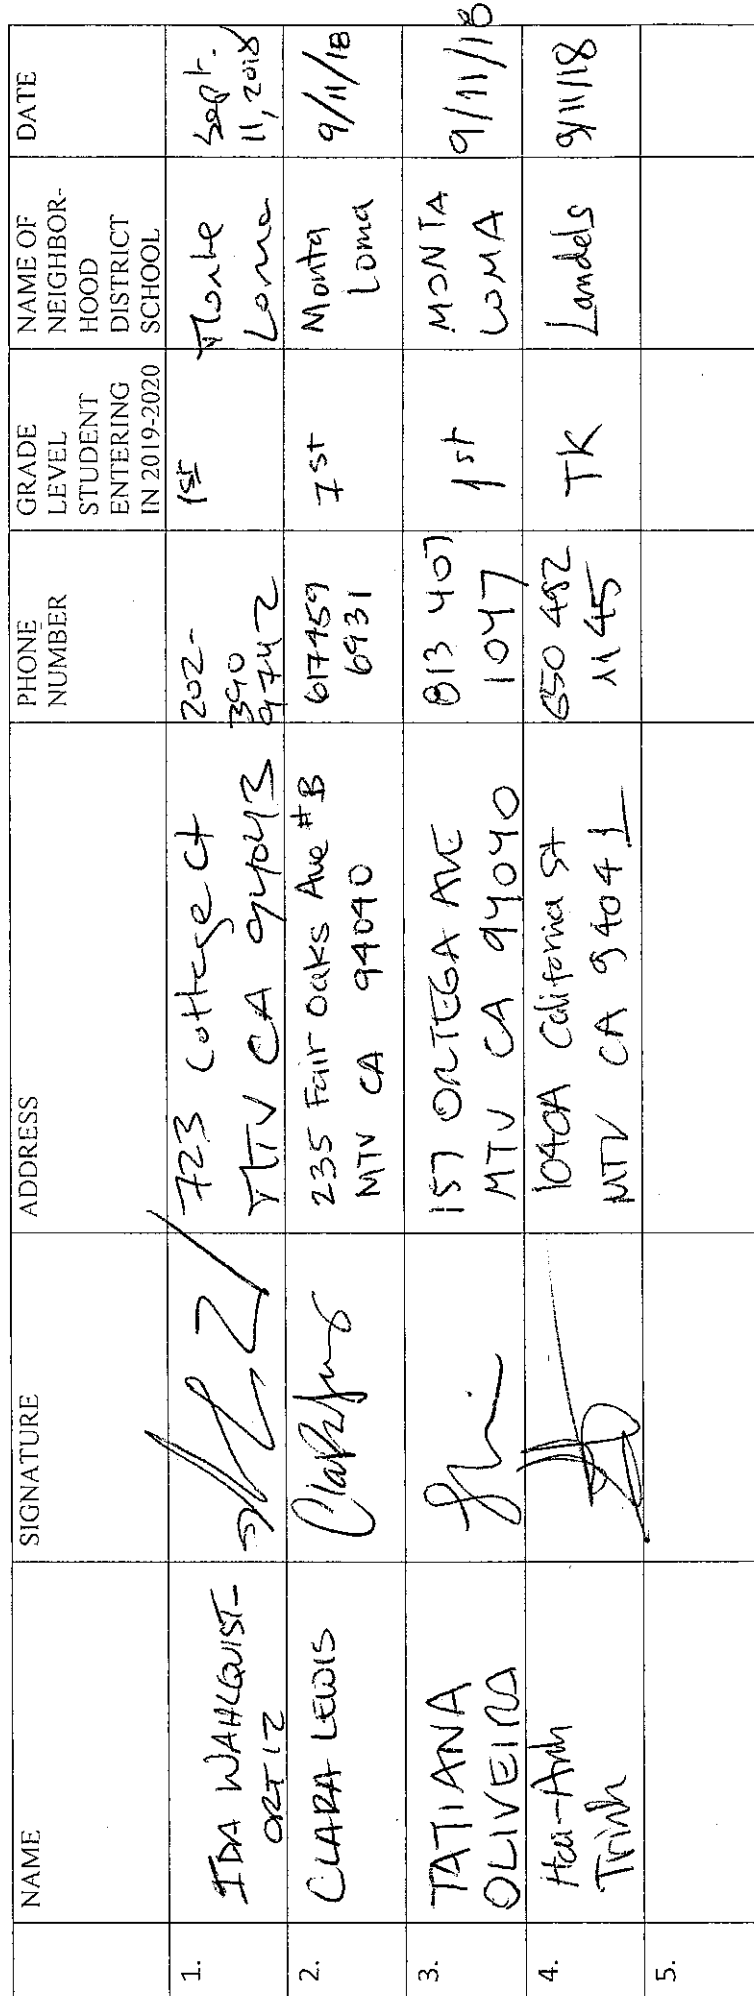 NAME
SIGNATURE
ADDRESS
PHONE
NUMBER
GRADE
LEVEL
STUDENT
ENTERING
IN 2019-2020
NAME OF
NEIGHBOR-
HOOD
DISTRICT
SCHOOL
DATE
1.
IDA WAHLQUIST-
ORTIZ
723 Cottage Ct
MTV CA 94043
202-
390
9742
1st
Monte
Loma
Sept.
11, 2018
2.
CLARA LEWIS
235 Fair Oaks Ave #B
MTV CA 94040
617 459
6931
1st
Monta
Loma
9/11/18
3.
TATIANA
OLIVEIRA
157 ORTEGA AVE
MTV CA 94040
813 407
1047
1st
MONTA
LOMA
9/11/18
4.
Hai-Anh
Trinh
1040A California St
MTV CA 94041
650 492
1145
TK
Landels
9/11/18
5.